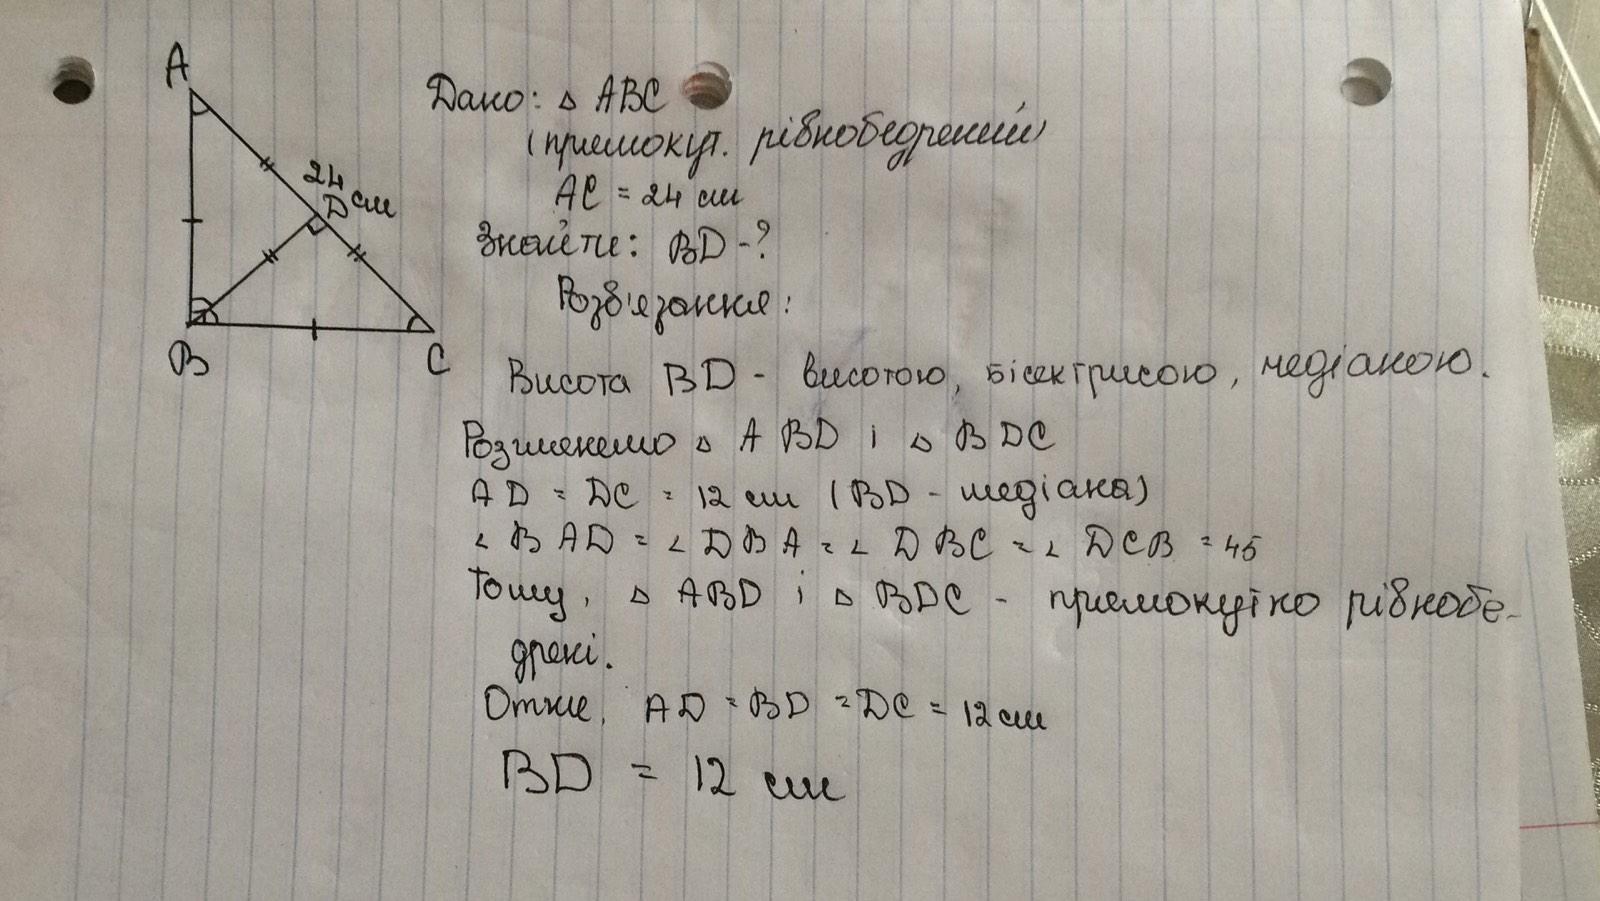 A
24
D см
B
C
Дано: △ ABC
(прямокут. рівнобедрений)
AC = 24 см
Знайти: BD -?
Розв'язання:
Висота BD - висотою, бісектрисою, медіаною.
Розглянемо △ ABD і △ BDC
AD = DC = 12 см (BD - медіана)
∠ BAD = ∠ DBA = ∠ DBC = ∠ DCB = 45
Тому, △ ABD і △ BDC - прямокутно рівнобе-
дрені.
Отже, AD = BD = DC = 12 см
BD = 12 см